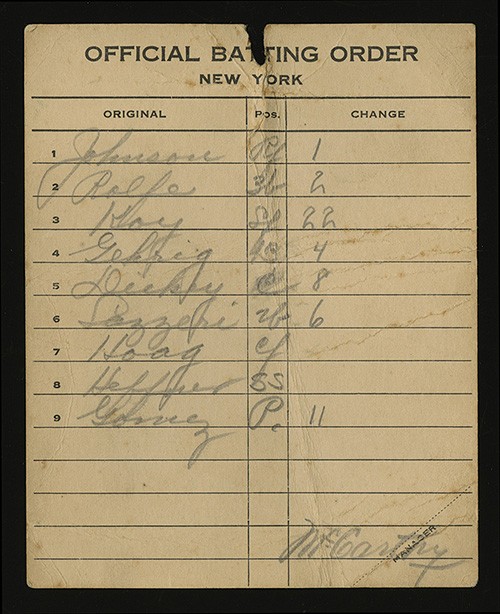 OFFICIAL BATTING ORDER
NEW YORK
ORIGINAL Pos. CHANGE
1 Johnson Rf 1
2 Rolfe 3b 2
3 Hoy Lf 22
4 Gehrig 1B 4
5 Dickey C 8
6 Lazzeri 2b 6
7 Hoag Cf
8 Heffner SS
9 Gomez P. 11
McCarthy
MANAGER